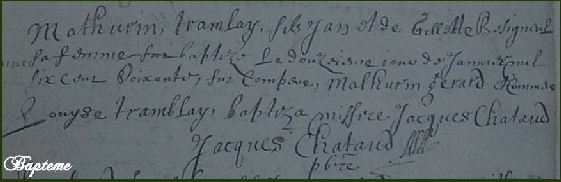 Mathurin, tramblay, fils Jan et de Gillette
sa femme fut baptizé Le douziesme iour de Januier mil
six cent soixante, fut Compere, Mathurin Gerard Commere
Louyse tramblay, baptiza missire Jacques Chataud
Jacques Chataud
pbre
Bapteme